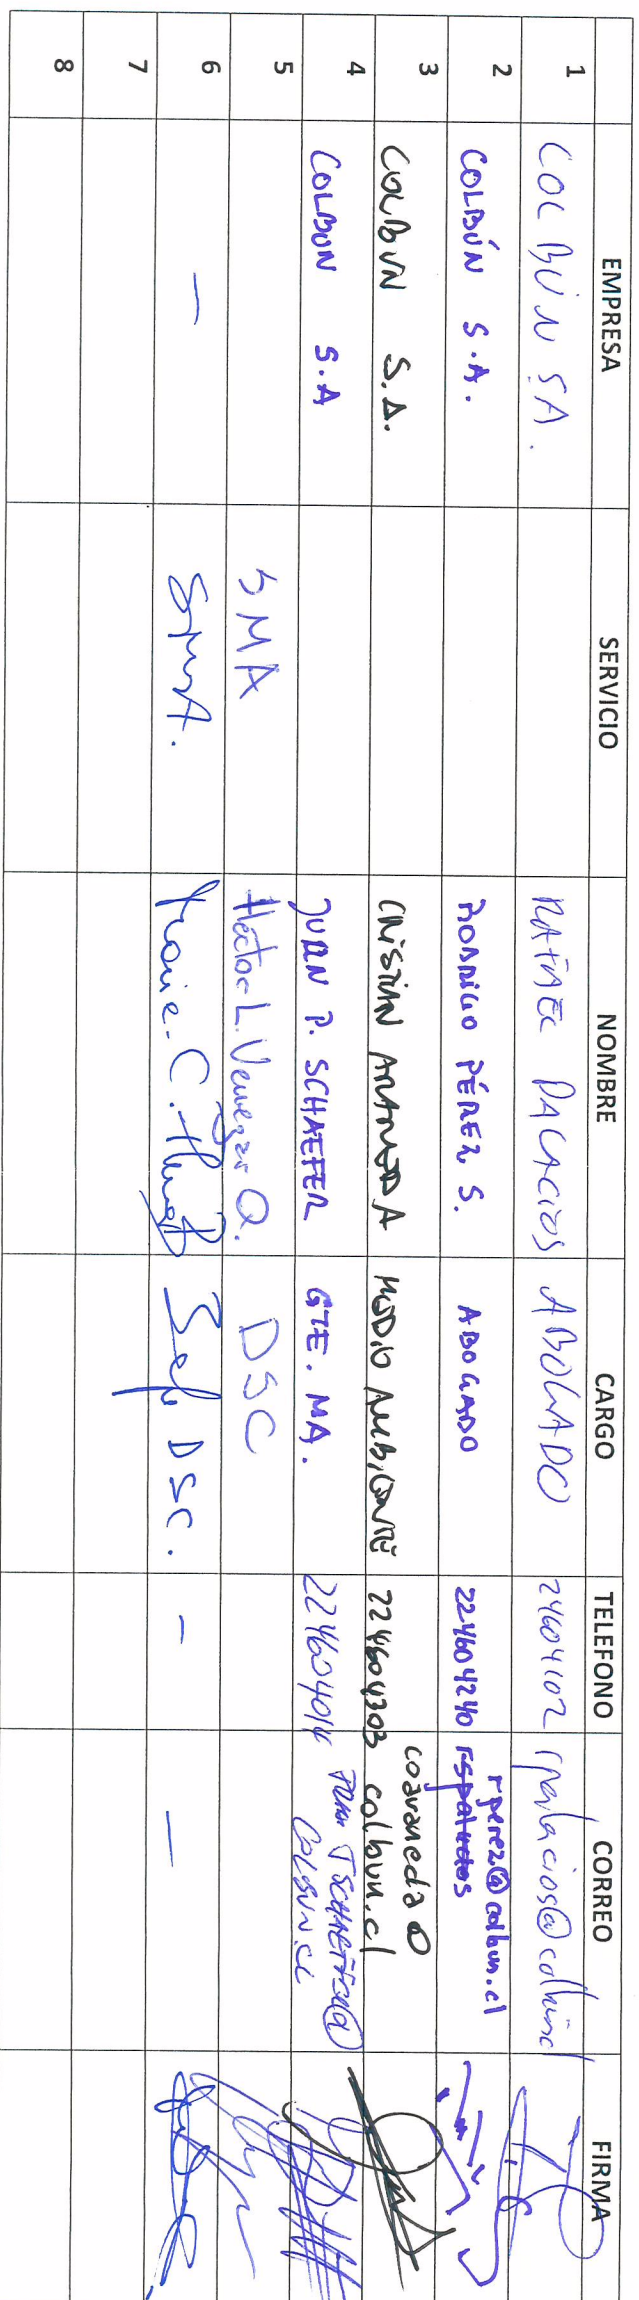 EMPRESA SERVICIO NOMBRE CARGO TELEFONO CORREO FIRMA
1 COLBÚN S.A. RAFAEL PALACIOS ABOGADO 24604102 rpalacios@colbun.cl
2 COLBÚN S.A. RODRIGO PÉREZ S. ABOGADO 224604240 rperez@colbun.cl
3 COLBUN S.A. CRISTIAN ARANEDA MEDIO AMBIENTE 224604303 coaraneda@
colbun.cl
4 COLBUN S.A JUAN P. SCHAEFER GTE. MA. 224604014
COLBUN.CL
5 SMA Héctor L. Q. DSC
6 — SMA. Marie C. Jefe DSC. – —
7
8